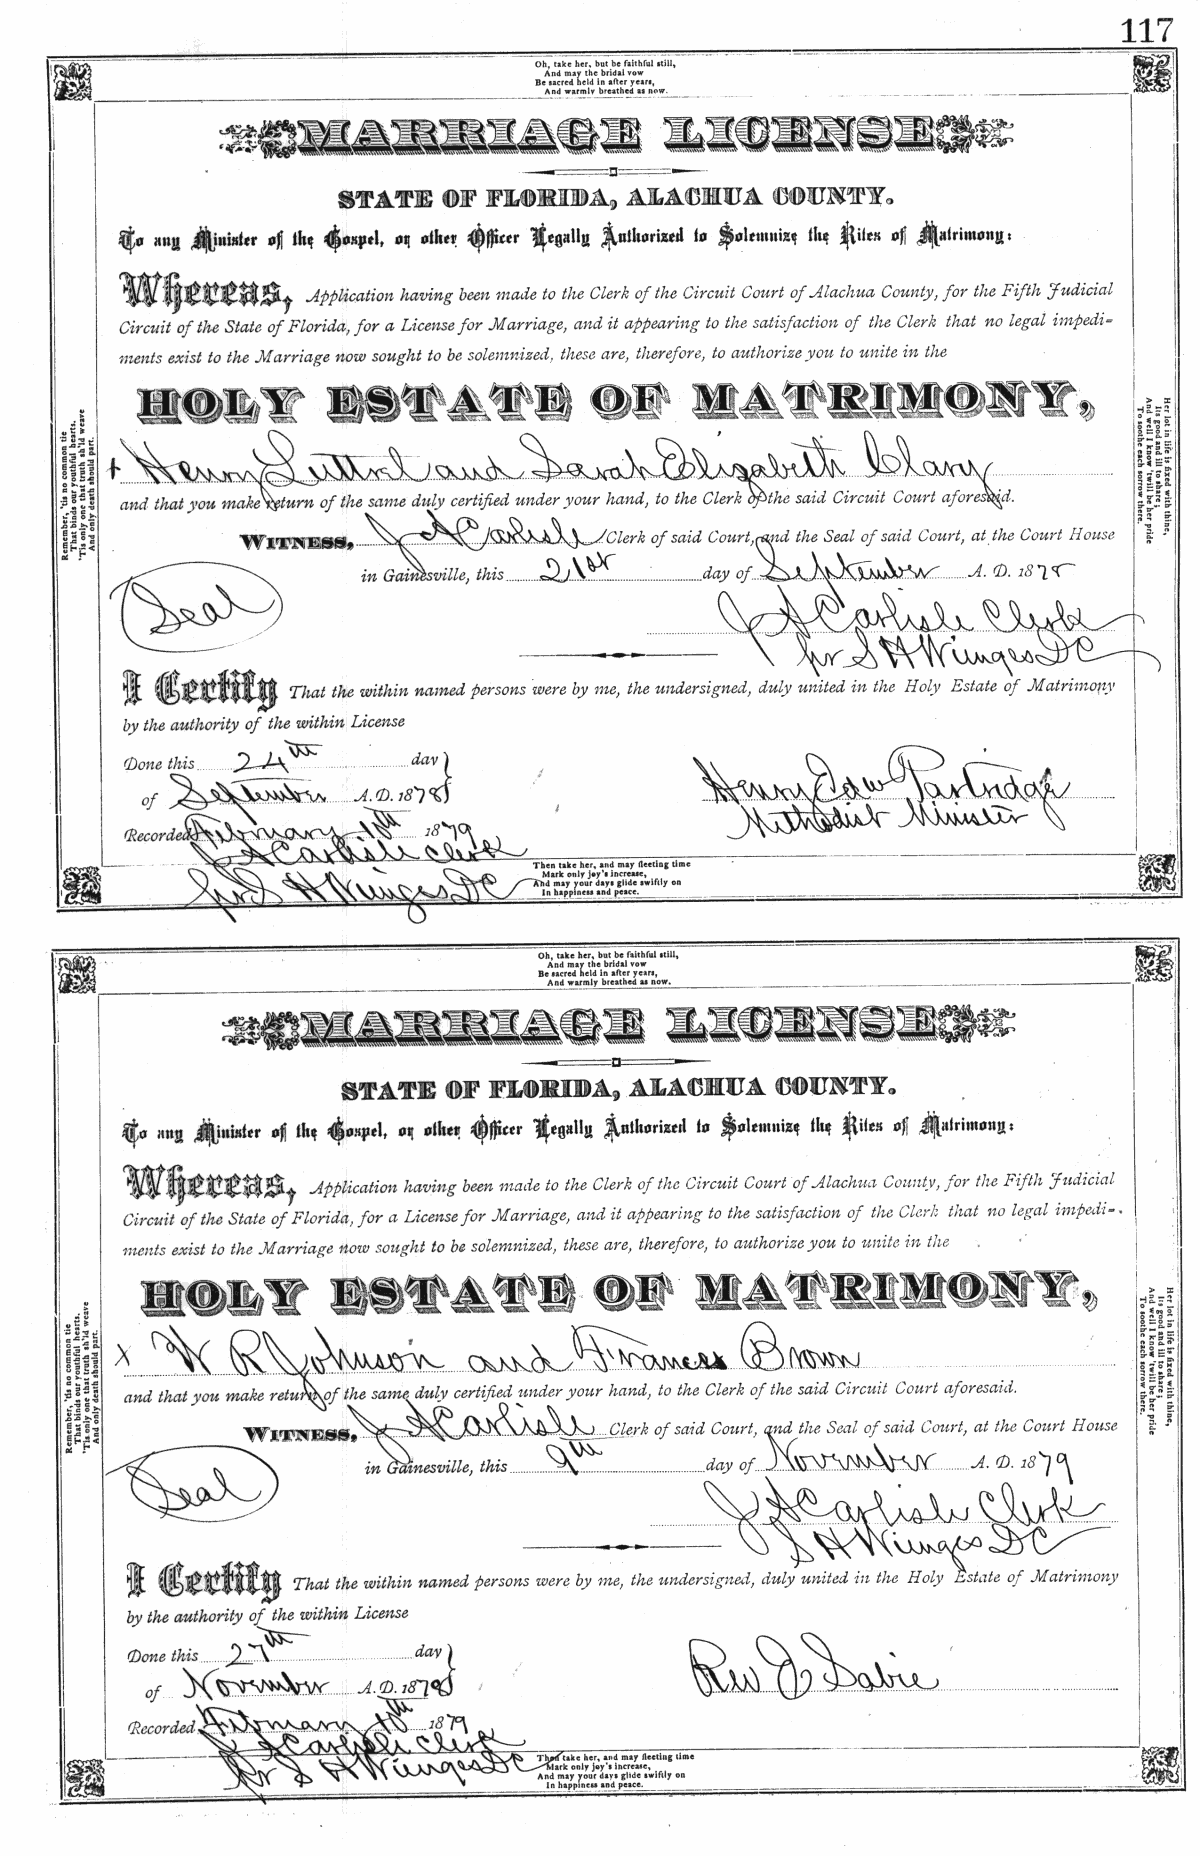 117
Oh, take her, but be faithful still,
And may the bridal vow
Be sacred held in after years,
And warmly breathed as now.
MARRIAGE LICENSE
STATE OF FLORIDA, ALACHUA COUNTY.
To any Minister of the Gospel, or other Officer Legally Authorized to Solemnize the Rites of Matrimony:
Whereas, Application having been made to the Clerk of the Circuit Court of Alachua County, for the Fifth Judicial
Circuit of the State of Florida, for a License for Marriage, and it appearing to the satisfaction of the Clerk that no legal impedi-
ments exist to the Marriage now sought to be solemnized, these are, therefore, to authorize you to unite in the
HOLY ESTATE OF MATRIMONY,
+ Henry Luttrel and Sarah Elizabeth Clary
and that you make return of the same duly certified under your hand, to the Clerk of the said Circuit Court aforesaid.
WITNESS, J A Carlisle Clerk of said Court, and the Seal of said Court, at the Court House
in Gainesville, this 21st day of September A. D. 1878
Seal
J A Carlisle Clerk
pr S H Wienges DC
I Certify That the within named persons were by me, the undersigned, duly united in the Holy Estate of Matrimony
by the authority of the within License
Done this 24th day }
of September A. D. 1878
Henry Edw Partridge
Methodist Minister
Recorded February 10th 1879
J A Carlisle Clerk
pr S H Wienges DC
Remember, 'tis no common tie
That binds our youthful hearts,
'Tis only one that truth sh'ld weave
And only death should part.
Her lot in life is fixed with thine,
Its good and ill to share;
And well I know 'twill be her pride
To soothe each sorrow there.
Then take her, and may fleeting time
Mark only joy's increase,
And may your days glide swiftly on
In happiness and peace.
Oh, take her, but be faithful still,
And may the bridal vow
Be sacred held in after years,
And warmly breathed as now.
MARRIAGE LICENSE
STATE OF FLORIDA, ALACHUA COUNTY.
To any Minister of the Gospel, or other Officer Legally Authorized to Solemnize the Rites of Matrimony:
Whereas, Application having been made to the Clerk of the Circuit Court of Alachua County, for the Fifth Judicial
Circuit of the State of Florida, for a License for Marriage, and it appearing to the satisfaction of the Clerk that no legal impedi-
ments exist to the Marriage now sought to be solemnized, these are, therefore, to authorize you to unite in the
HOLY ESTATE OF MATRIMONY,
x W R Johnson and Frances Brown
and that you make return of the same duly certified under your hand, to the Clerk of the said Circuit Court aforesaid.
WITNESS, J A Carlisle Clerk of said Court, and the Seal of said Court, at the Court House
in Gainesville, this 9th day of November A. D. 1879
Seal
J A Carlisle Clerk
S H Wienges DC
I Certify That the within named persons were by me, the undersigned, duly united in the Holy Estate of Matrimony
by the authority of the within License
Done this 27th day }
of November A. D. 1878
Rev J Sabie
Recorded February 10th 1879
J A Carlisle Clerk
pr S H Wienges DC
Remember, 'tis no common tie
That binds our youthful hearts,
'Tis only one that truth sh'ld weave
And only death should part.
Her lot in life is fixed with thine,
Its good and ill to share;
And well I know 'twill be her pride
To soothe each sorrow there.
Then take her, and may fleeting time
Mark only joy's increase,
And may your days glide swiftly on
In happiness and peace.